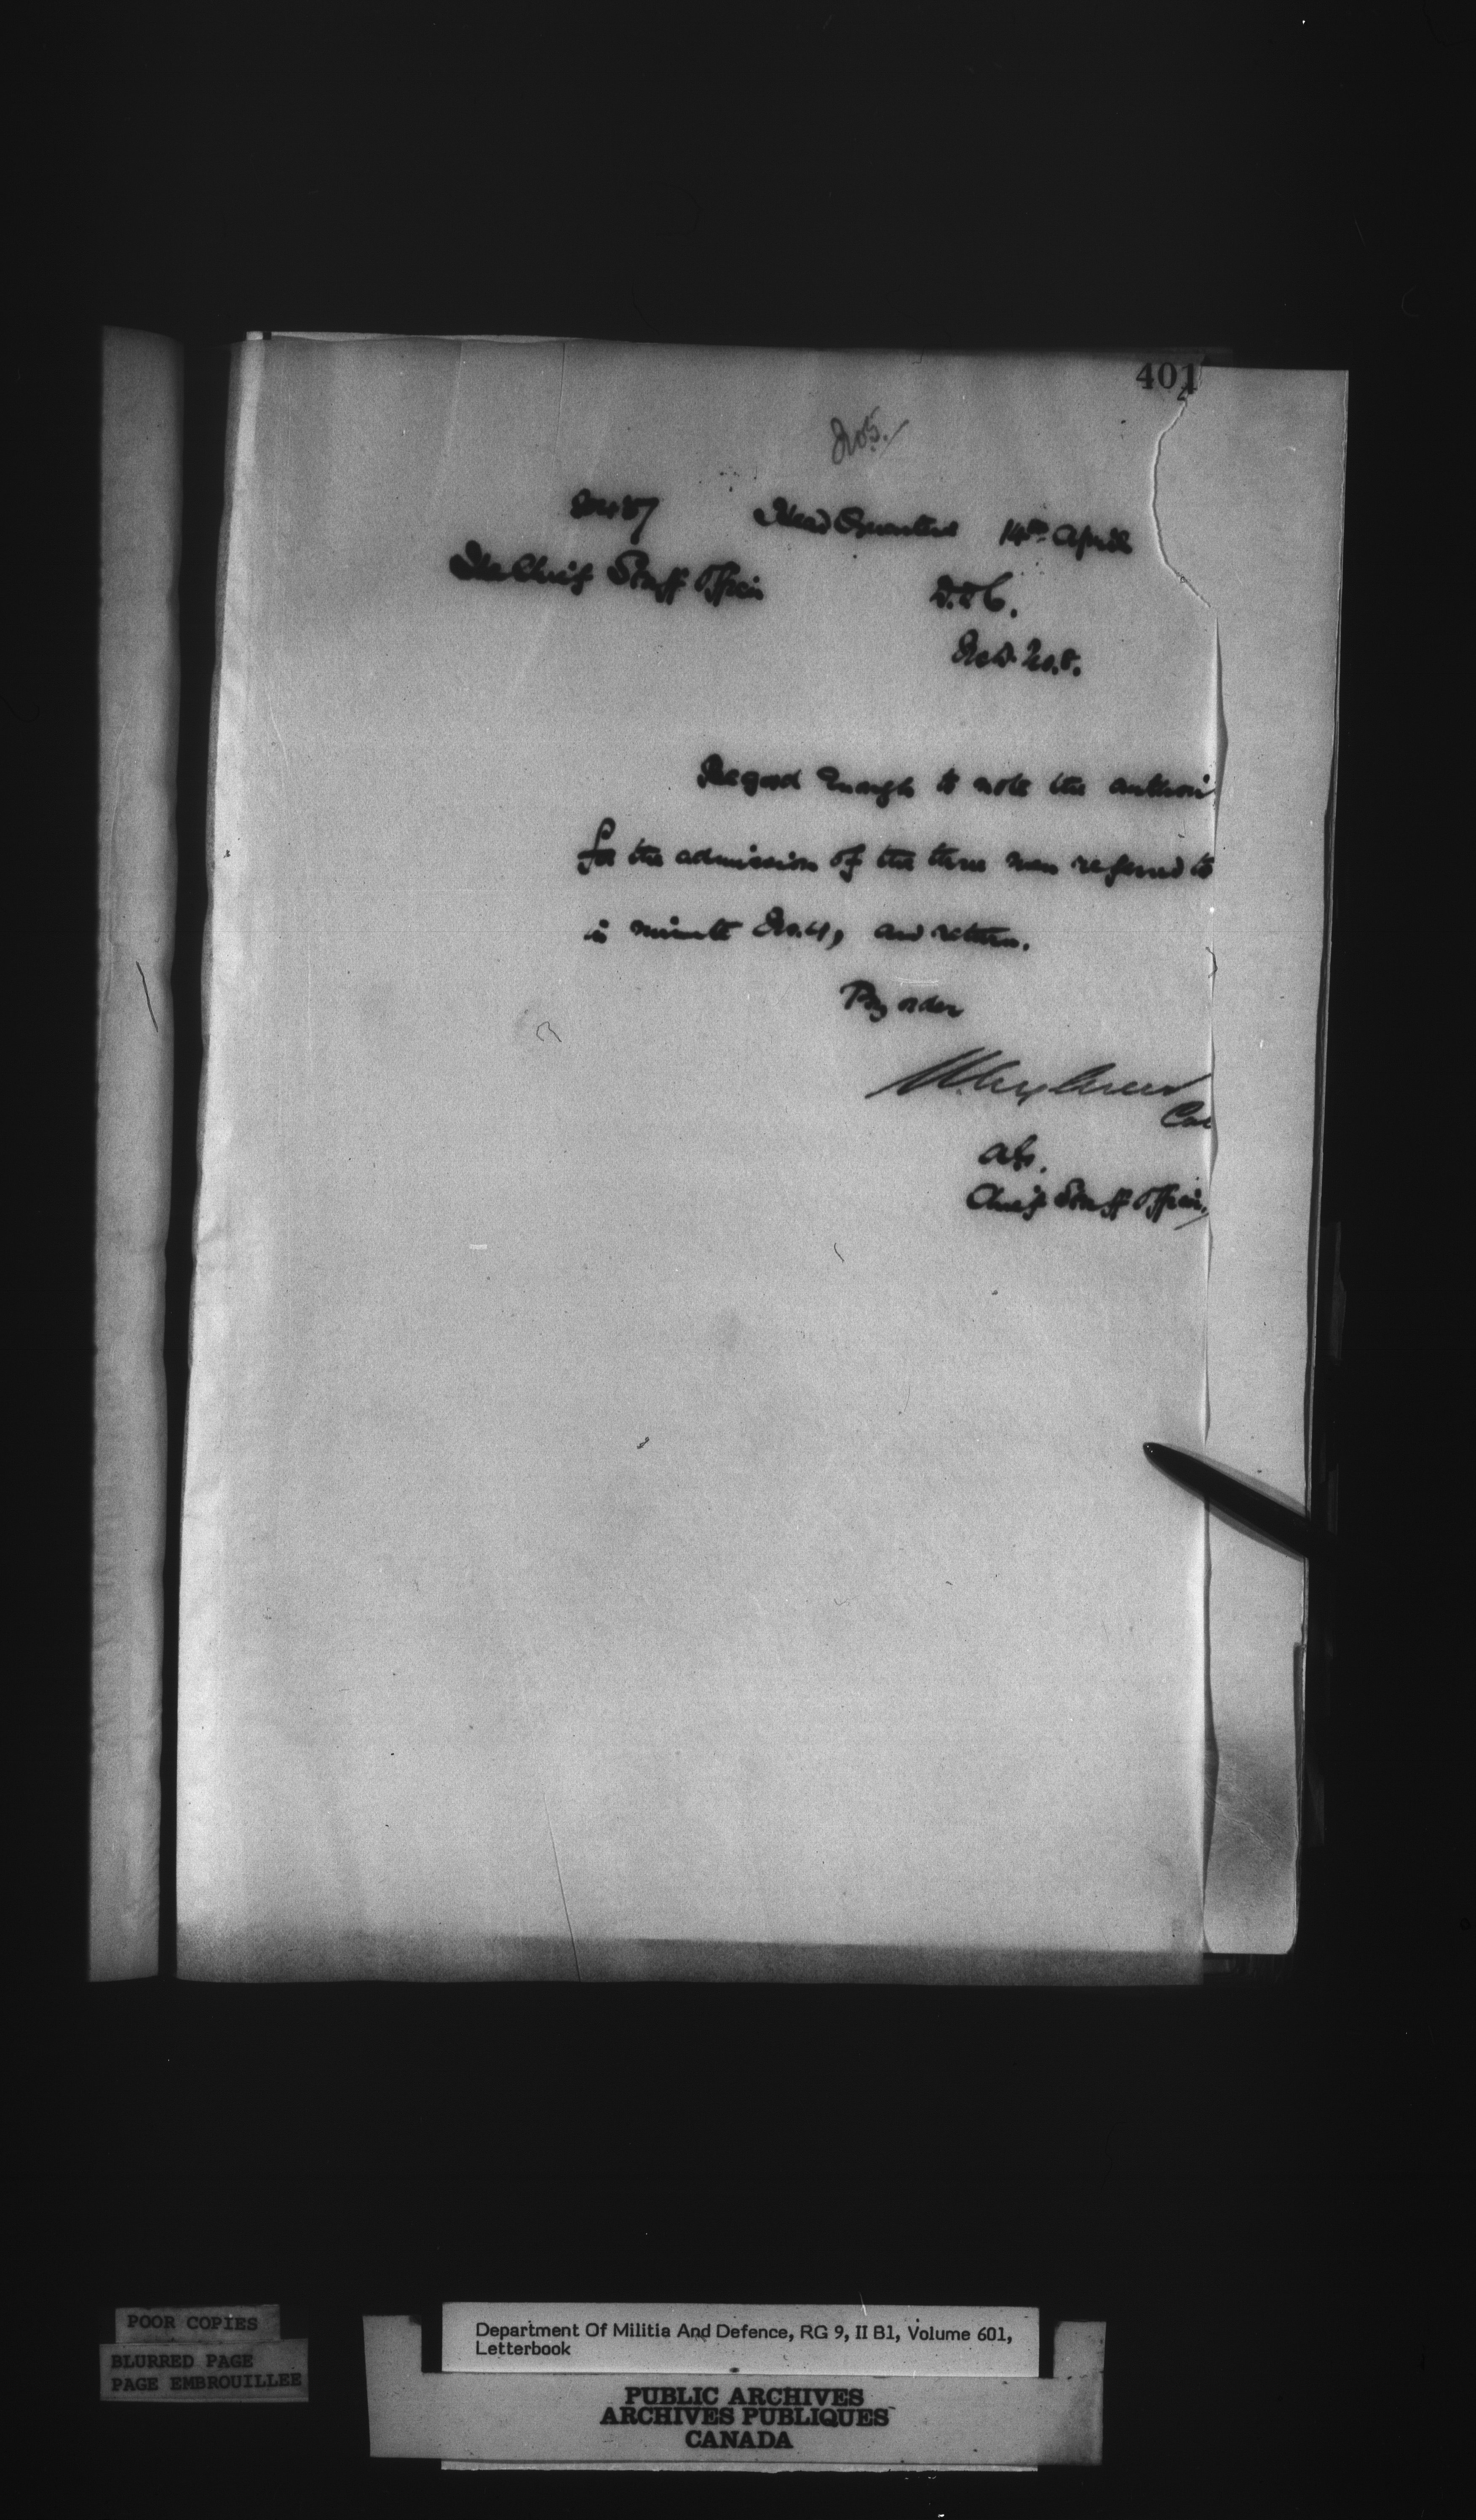 401
No 5.
20487 Head Quarters 14th April
The Chief Staff Officer
M.D. No. 8.
Be good enough to note the authori
for the admission of the three men referred to
in minute No. 4, and return.
By order
Col
Chief Staff Officer.
POOR COPIES
BLURRED PAGE
PAGE EMBROUILLEE
Department Of Militia And Defence, RG 9, II B1, Volume 601,
Letterbook
PUBLIC ARCHIVES
ARCHIVES PUBLIQUES
CANADA